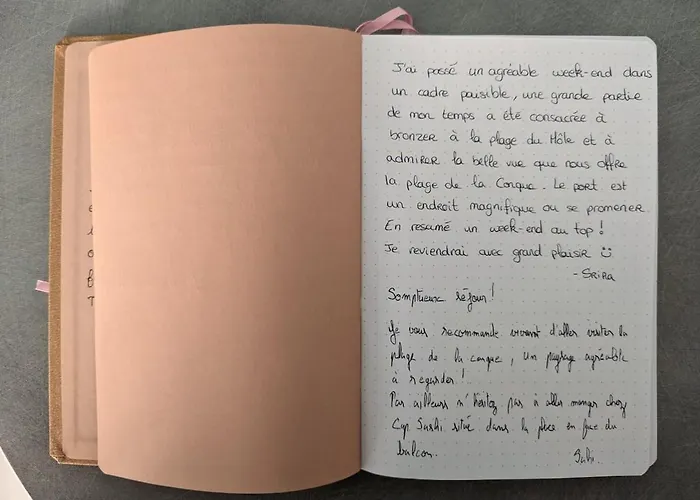 J'ai passé un agréable week-end dans
un cadre paisible, une grande partie
de mon temps a été consacrée à
bronzer à la plage du Môle et à
admirer la belle vue que nous offre
la plage de la Conque. Le port est
un endroit magnifique ou se promener.
En resumé un week-end au top !
Je reviendrai avec grand plaisir ☺
Somptueux séjour !
Je vous recommande vivement d'aller visiter la
plage de la conque, un paysage agréable
à regarder !
Par ailleurs n'hésitez pas à aller manger chez
Cap Sushi situé dans la place en face du
balcon.